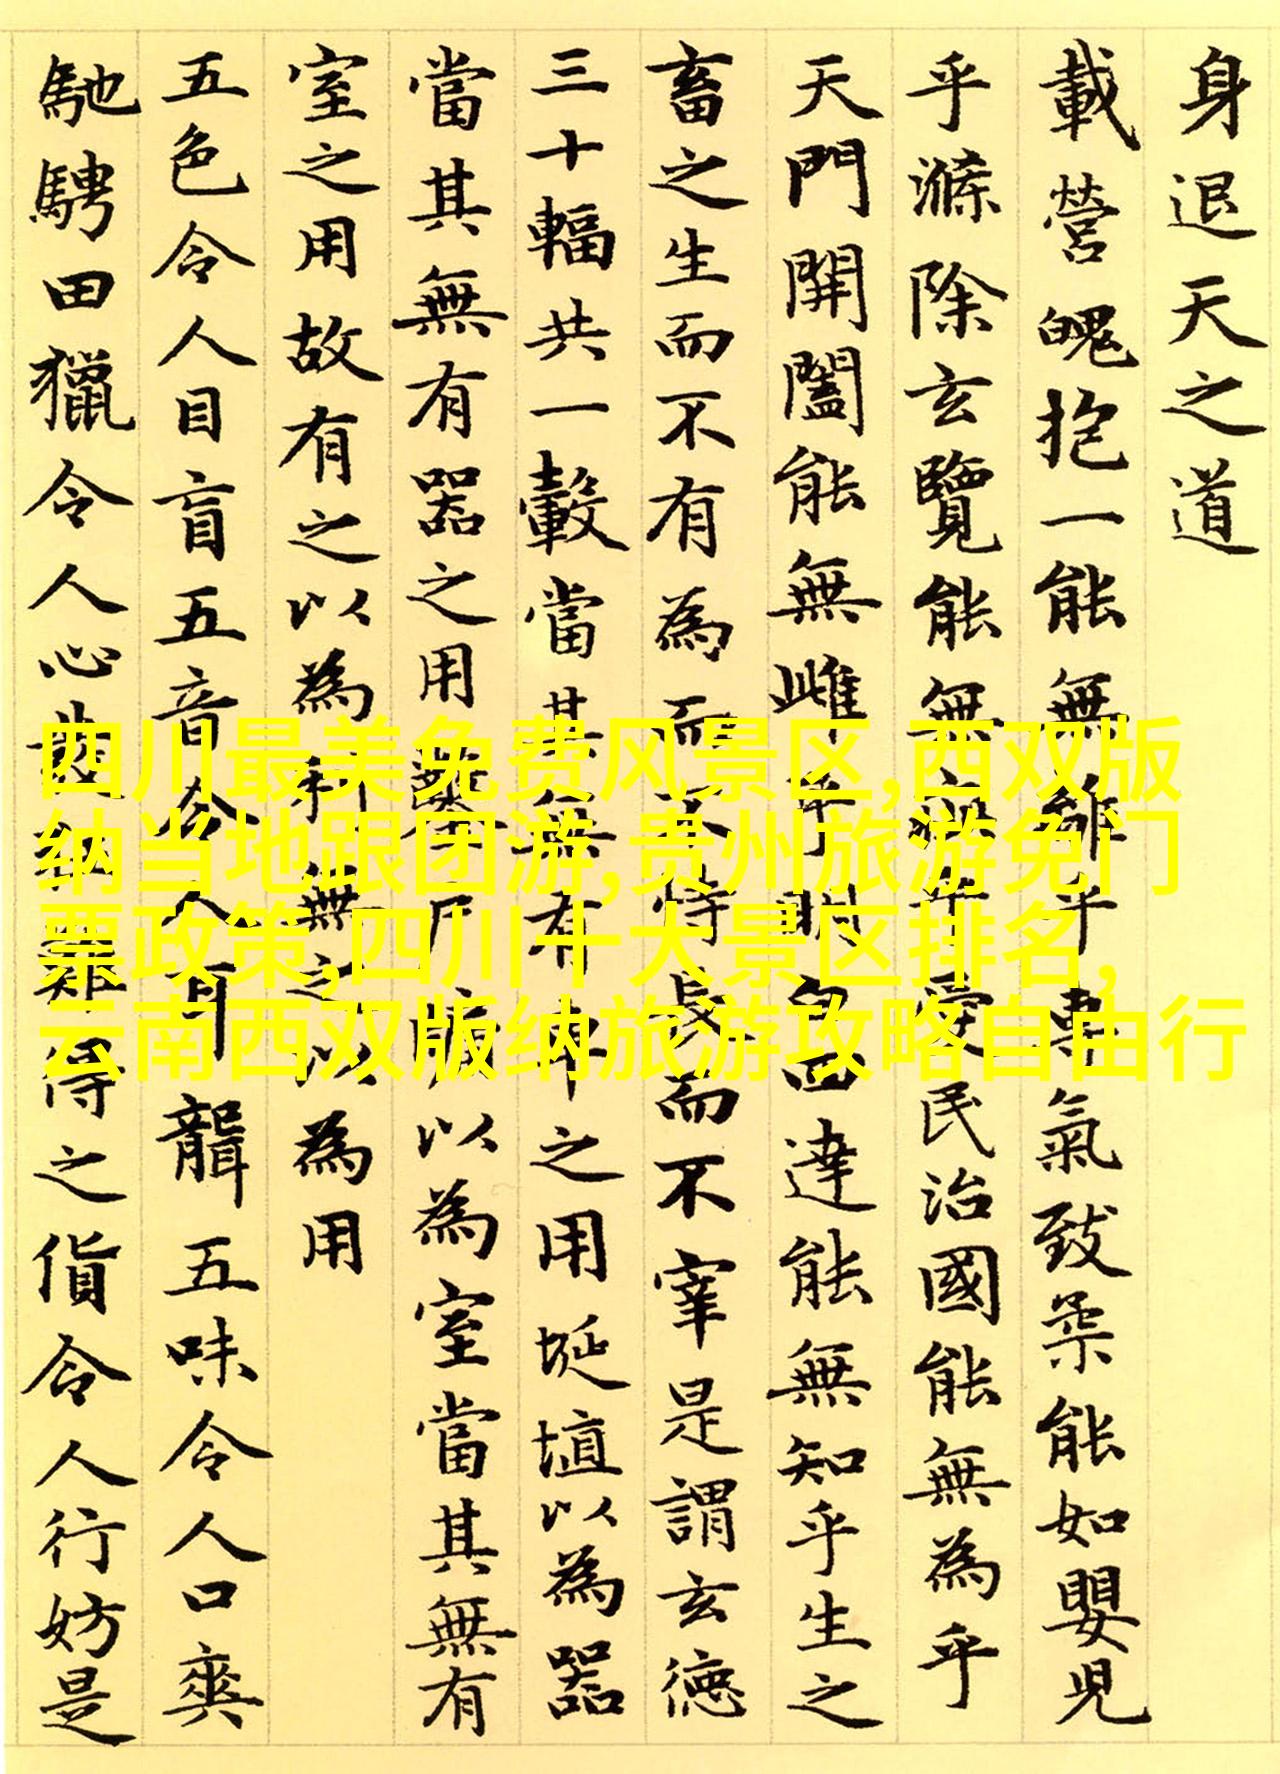 身退天之道
載營魄抱一能無離乎專氣致柔能如嬰兒
乎滌除玄覽能無疵乎愛民治國能無為乎
天門開闔能無雌乎明白四達能無知乎生之
畜之生而不有為而不恃長而不宰是謂玄德
三十輻共一轂當其無有車之用埏埴以為器
當其無有器之用鑿戶牖以為室當其無有
室之用故有之以為利無之以為用
五色令人目盲五音令人耳聾五味令人口爽
馳騁田獵令人心發狂難得之貨令人行妨是
四川最美免费风景区,西双版
纳当地跟团游,贵州旅游免门
票政策,四川十大景区排名,
云南西双版纳旅游攻略自由行